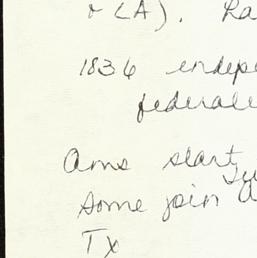 + LA). Ra
1836 indepe
federale
Ams start
Some join
Tx